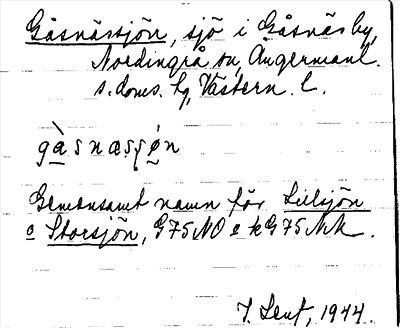 Gåsnässjön, sjö i Gåsnäs by,
Nordingrå sn, Ångermanl.
s. doms. hg, Västern. l.
gàsnæsʃøn
Gemensamt namn för Lillsjön
o Storsjön, G75NO e kG75Nk.
7. Sept, 1944.